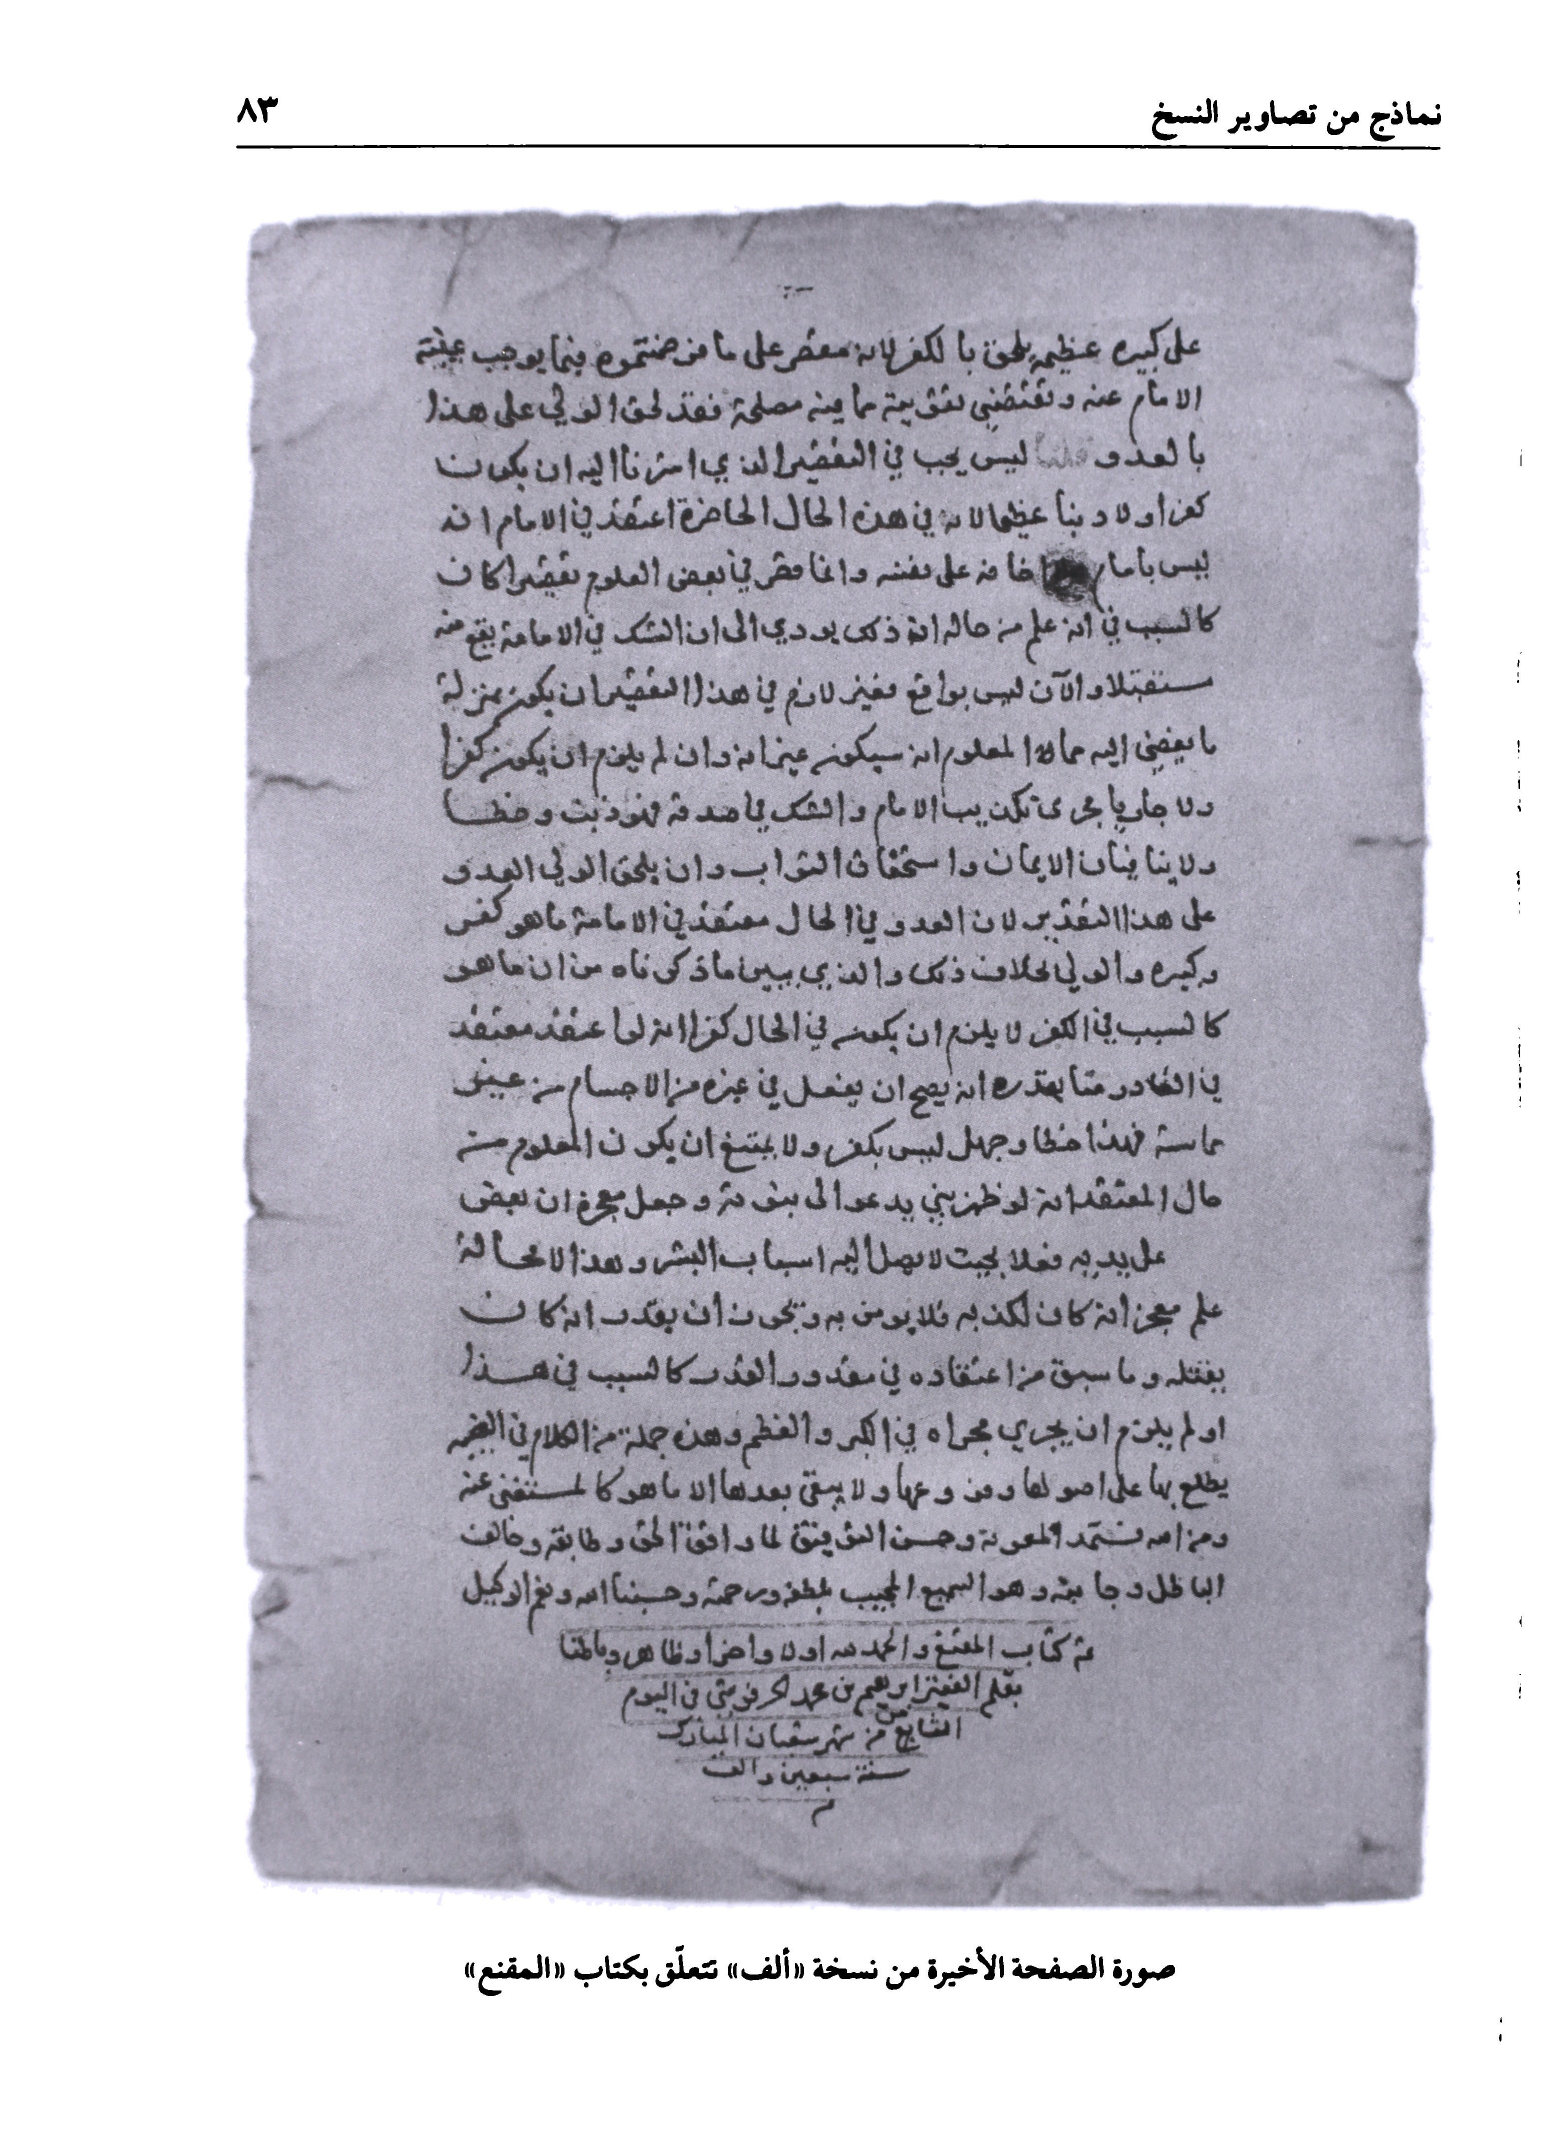 نماذج من تصاوير النسخ ٨٣
على كبيره عظيمه يلحق با لكفر لانه مقصر على ما فرضتموه فيما يوجب غيبته
الامام عنه و تقتضي تفويته مما فيه مصلحة فقد لحق الولي على هذا
بالعدو قلنا ليس يجب في التقصير الذي اشرنا اليه ان يكون
كفرا ولا ذنبا عظيما لانه في هذه الحال الحاضرة اعتقد في الامام انه
ليس بامام خافه على نفسه وانما قصر في بعض العلوم تقصيرا كان
كالسبب في انه علم من حاله ان ذلك يودي الى ان الشك في الامامة يقع منه
مستقبلا والآن ليس بواقع فغير لازم في هذا التقصير ان يكون بمنزلة
ما يفضي اليه مما المعلوم انه سيكون غير انه وان لم يلزم ان يكون كفرا
ولا جاريا مجرى تكذيب الامام والشك في صدقه فهو ذنب وخطا
ولا ينافيان الايمان واستحقاق الثواب وان يلحق الولي العدو
على هذا التقدير لان العدو في الحال معتقد في الامامة ما هو كفر
وكبيره والولي بخلاف ذلك والذي يبين ما ذكرناه من ان ما هو
كالسبب في الكفر لا يلزم ان يكون في الحال كفرا انه لو اعتقد معتقد
في القادر منا بقدره انه يصح ان يفعل في غيره من الاجسام من غير
مماسة فهذا خطا وجهل ليس بكفر ولا يمتنع ان يكون المعلوم من
حال المعتقد انه لو ظهر نبي يدعو الى نبوته وجعل معجزه ان يفعل
على يديه فعلا بحيث لا يصل اليه اسباب البشر وهذا لا محالة
علم معجز انه كان لكذبه فلا يومن به ويجوز ان يقدر انه كان
يقتله وما سبق من اعتقاده في مقدور القدر كالسبب في هذا
او لم يلزم ان يجري مجراه في الكبر والعظم وهذه جملة من الكلام في الغيبه
يطلع بها على اصولها وفروعها ولا يبقى بعدها الا ما هو كالمستغنى عنه
ومن الله نستمد المعونة وحسن التوفيق لما وافق الحق وطابقه وخالف
الباطل وجانبه وهو السميع المجيب بلطفه ورحمته وحسبنا الله ونعم الوكيل
تم كتاب المقنع والحمد لله اولا واخرا وظاهرا وباطنا
بقلم الفقير ابرهيم بن محمد الحرفوشي في اليوم
السابع من شهر شعبان المبارك
سنة سبعين والف
م
صورة الصفحة الأخيرة من نسخة «ألف» تتعلّق بكتاب «المقنع»